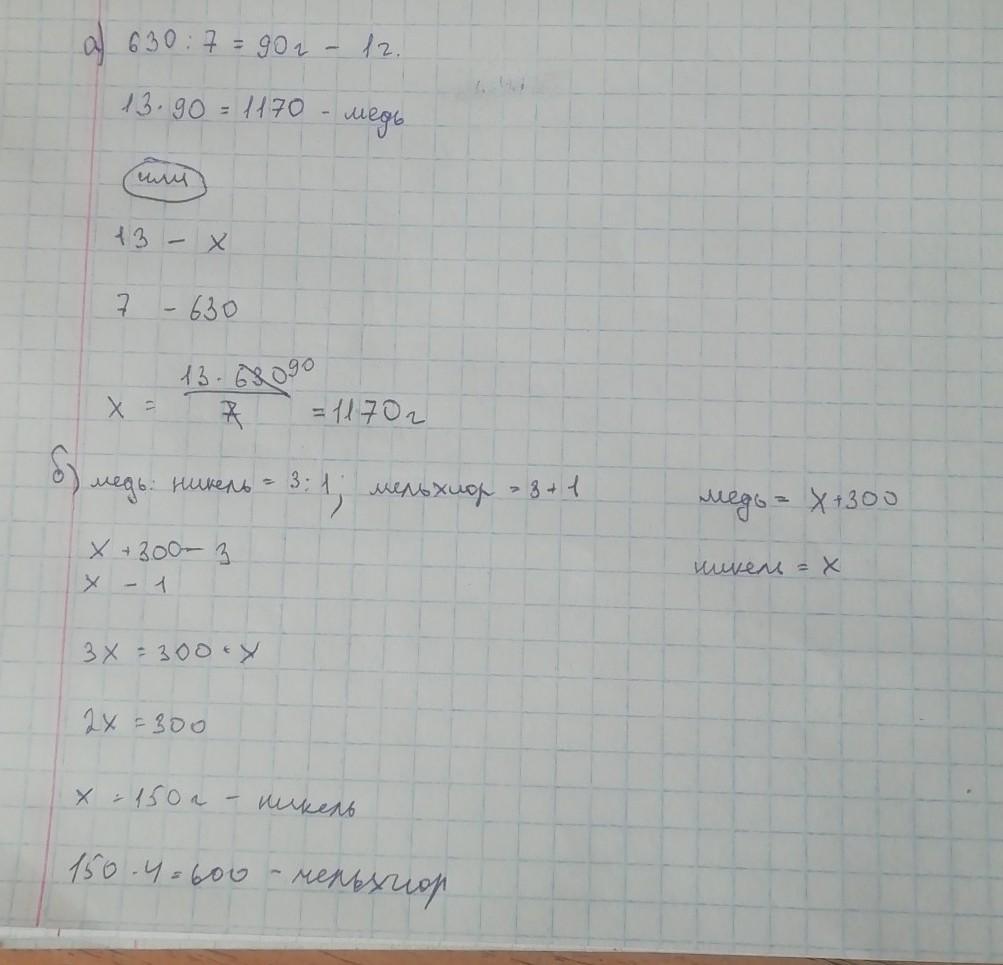 а) 630 : 7 = 90г - 1г.
13 · 90 = 1170 - медь
или
13 - x
7 - 630
x = 13 · 630 90 / 7 = 1170г
б) медь : никель = 3 : 1; мельхиор = 3 + 1
медь = x + 300
x + 300 - 3
никель = x
x - 1
3x = 300 + x
2x = 300
x = 150г - никель
150 · 4 = 600 - мельхиор